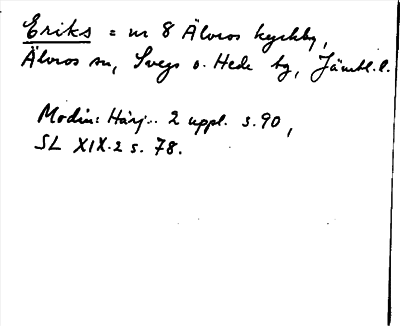 Eriks = nr 8 Älvros kyrkby,
Älvros sn, Svegs o. Hede tg, Jämtl. l.
Modin: Härj.. 2 uppl. s. 90,
SL XIX.2 s. 78.